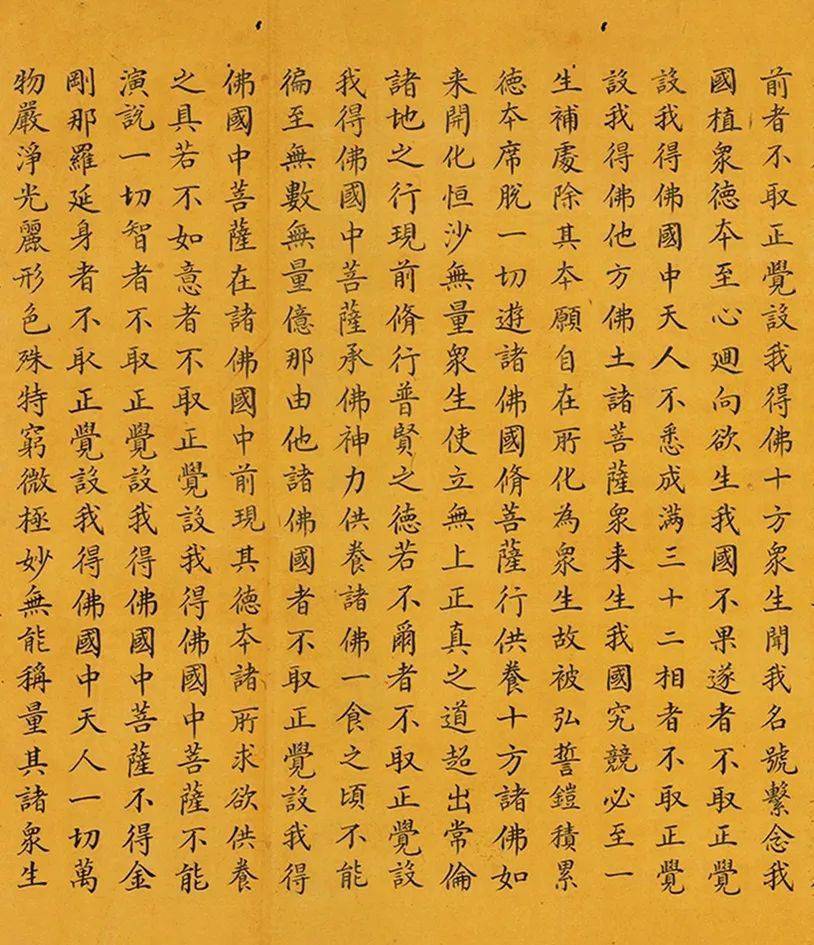 前者不取正覺設我得佛十方衆生聞我名號繫念我
國植衆德夲至心廽向欲生我國不果遂者不取正覺
設我得佛國中天人不悉成満三十二相者不取正覺
設我得佛他方佛土諸菩薩衆来生我國究競必至一
生補處除其夲願自在所化為衆生故被弘誓鎧積累
德夲席脫一切遊諸佛國脩菩薩行供養十方諸佛如
来開化恒沙無量衆生使立無上正真之道超出常倫
諸地之行現前脩行普賢之德若不爾者不取正覺設
我得佛國中菩薩承佛神力供養諸佛一食之頃不能
徧至無數無量億那由他諸佛國者不取正覺設我得
佛國中菩薩在諸佛國中前現其德夲諸所求欲供養
之具若不如意者不取正覺設我得佛國中菩薩不能
演說一切智者不取正覺設我得佛國中菩薩不得金
剛那羅延身者不取正覺設我得佛國中天人一切萬
物嚴淨光麗形色殊特窮微極妙無能稱量其諸衆生